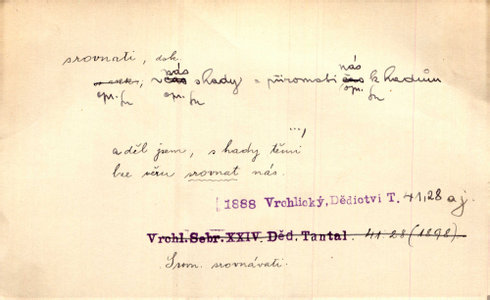 srovnati, dok.
nás s hady = přirovnati nás k hadům
opr. fu opr. fu opr. fu
...,
a děl jsem, s hady těmi
lze věru srovnat nás.
1888 Vrchlický, Dědictví T. 41,28 aj.
Vrchl. Sebr. XXIV. Děd. Tantal. 41 28 (1898)
Srov. srovnávati.